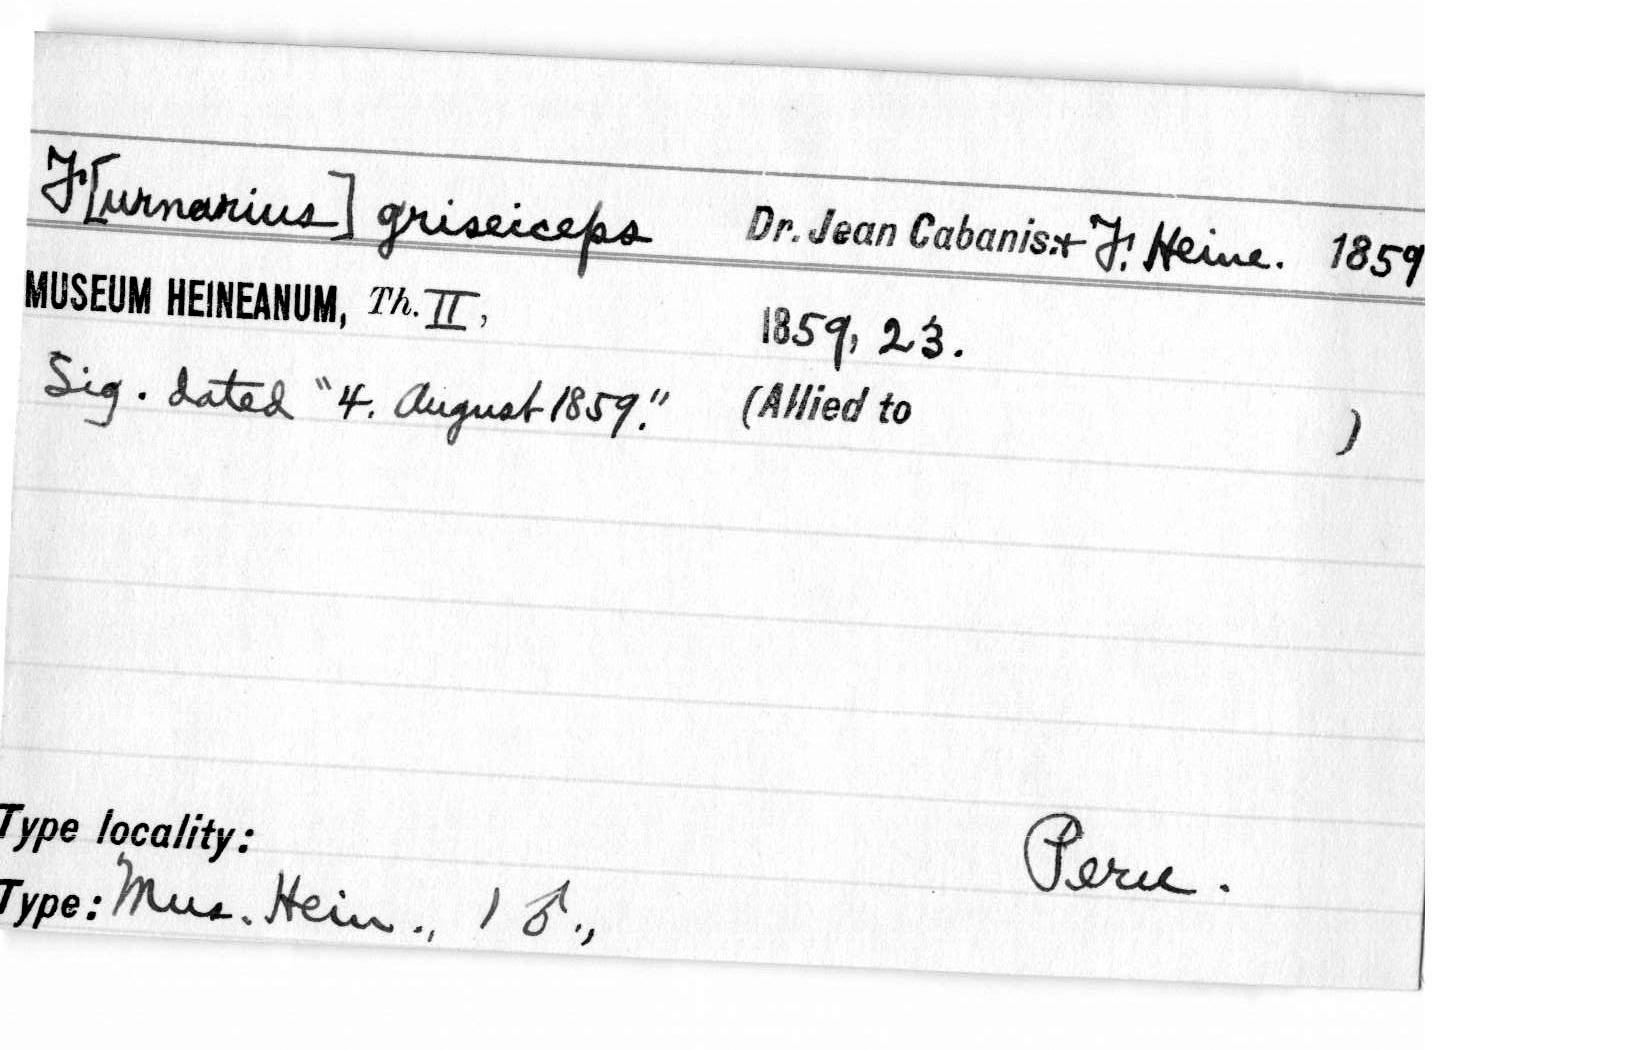 F[urnarius] griseiceps Dr. Jean Cabanis.+ F. Heine. 1859
MUSEUM HEINEANUM, Th. II, 1859, 23.
Sig. dated "4. August 1859." (Allied to )
Type locality: Peru.
Type: Mus. Hein., 1 ♂.,